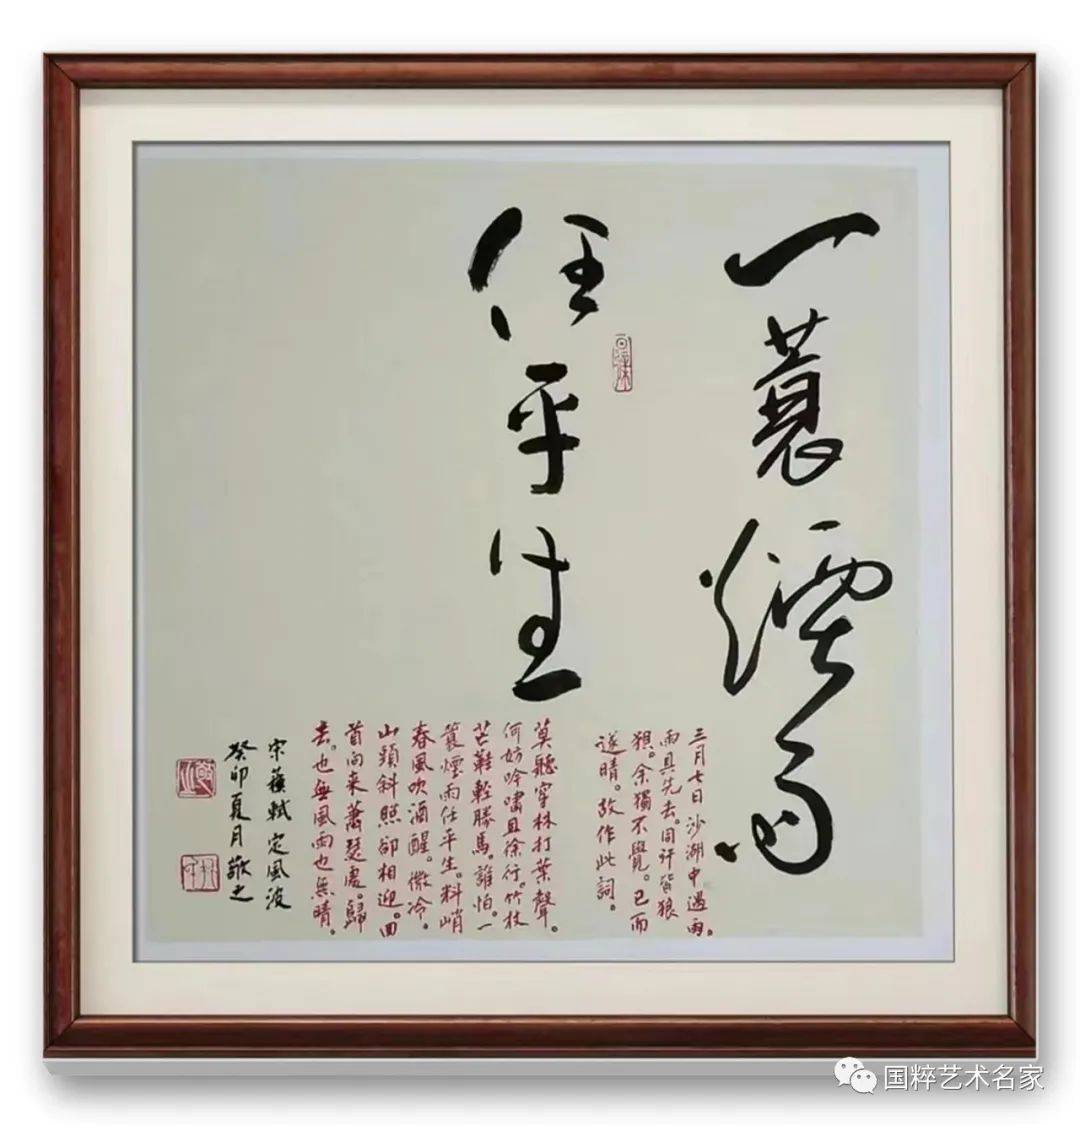 一蓑煙雨
任平生
三月七日沙湖中遇雨。
雨具先去。同行皆狼
狽。余獨不覺。已而
遂晴。故作此詞。
莫聽穿林打葉聲。
何妨吟嘯且徐行。竹杖
芒鞋輕勝馬。誰怕。一
蓑煙雨任平生。料峭
春風吹酒醒。微冷。
山頭斜照卻相迎。回
首向來蕭瑟處。歸
去。也無風雨也無晴。
宋蘇軾定風波
癸卯夏月敬之
国粹艺术名家